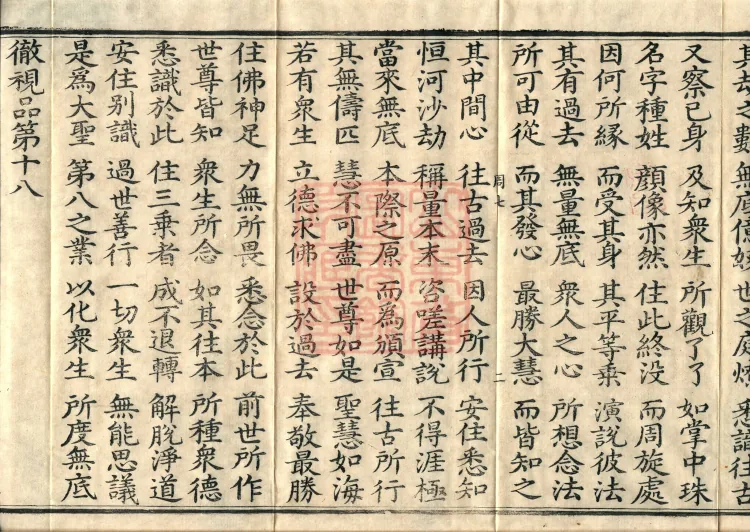 其去之數 無底億姟 世之塵㷿 悉識往古
又察已身 及知衆生 所觀了了 如掌中珠
名字種姓 顔像亦然 住此終没 而周旋處
因何所緣 而受其身 其平等乗 演説彼法
其有過去 無量無底 衆人之心 所想念法
所可由從 而其發心 最勝大慧 而皆知之
周七 二
其中間心 往古過去 因人所行 安住悉知
恒河沙劫 稱量本末 咨嗟講說 不得涯極
當來無底 本際之原 而為頒宣 往古所行
其無儔匹 慧不可盡 世尊如是 聖慧如海
若有衆生 立德求佛 設於過去 奉敬最勝
住佛神足 力無所畏 悉念於此 前世所作
世尊皆知 衆生所念 如其往本 所種衆德
悉識於此 住三乗者 成不退轉 解脫淨道
安住别識 過世善行 一切衆生 無能思議
是為大聖 第八之業 以化衆生 所度無底
徹視品第十八